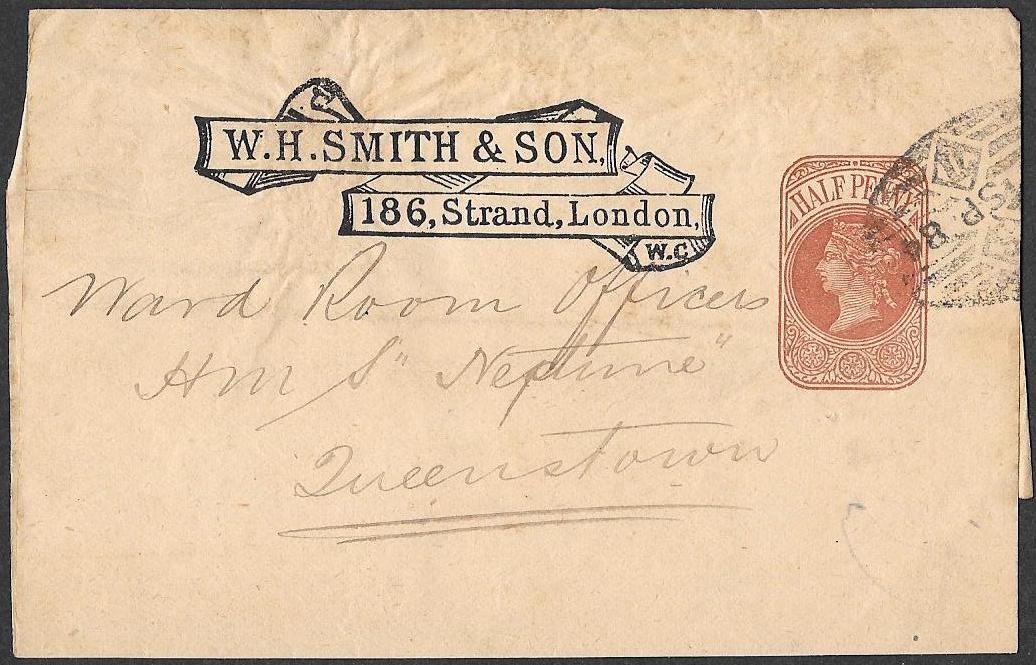 W.H. SMITH & SON,
186, Strand, London,
W.C
HALF PENNY
Ward Room Officers
HMS "Neptune"
Queenstown